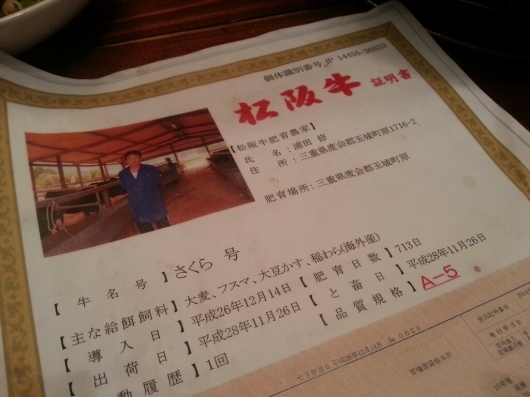 個体識別番号 JP 14455-36833
松阪牛 証明書
【松阪牛肥育農家】
氏 名 : 浦田 修
住 所 : 三重県度会郡玉城町原4716-2
肥育場所: 三重県度会郡玉城町原
【 牛 名 号 】 さくら 号
【主な給餌飼料】 大麦、フスマ、大豆かす、稲わら(海外産)
【 導 入 日 】 平成26年12月14日 【 肥 育 日 数 】 713日
【 出 荷 日 】 平成28年11月26日 【 と 畜 日 】 平成28年11月26日
動 履 歴 】 1回 【 品 質 規 格 】 A-5